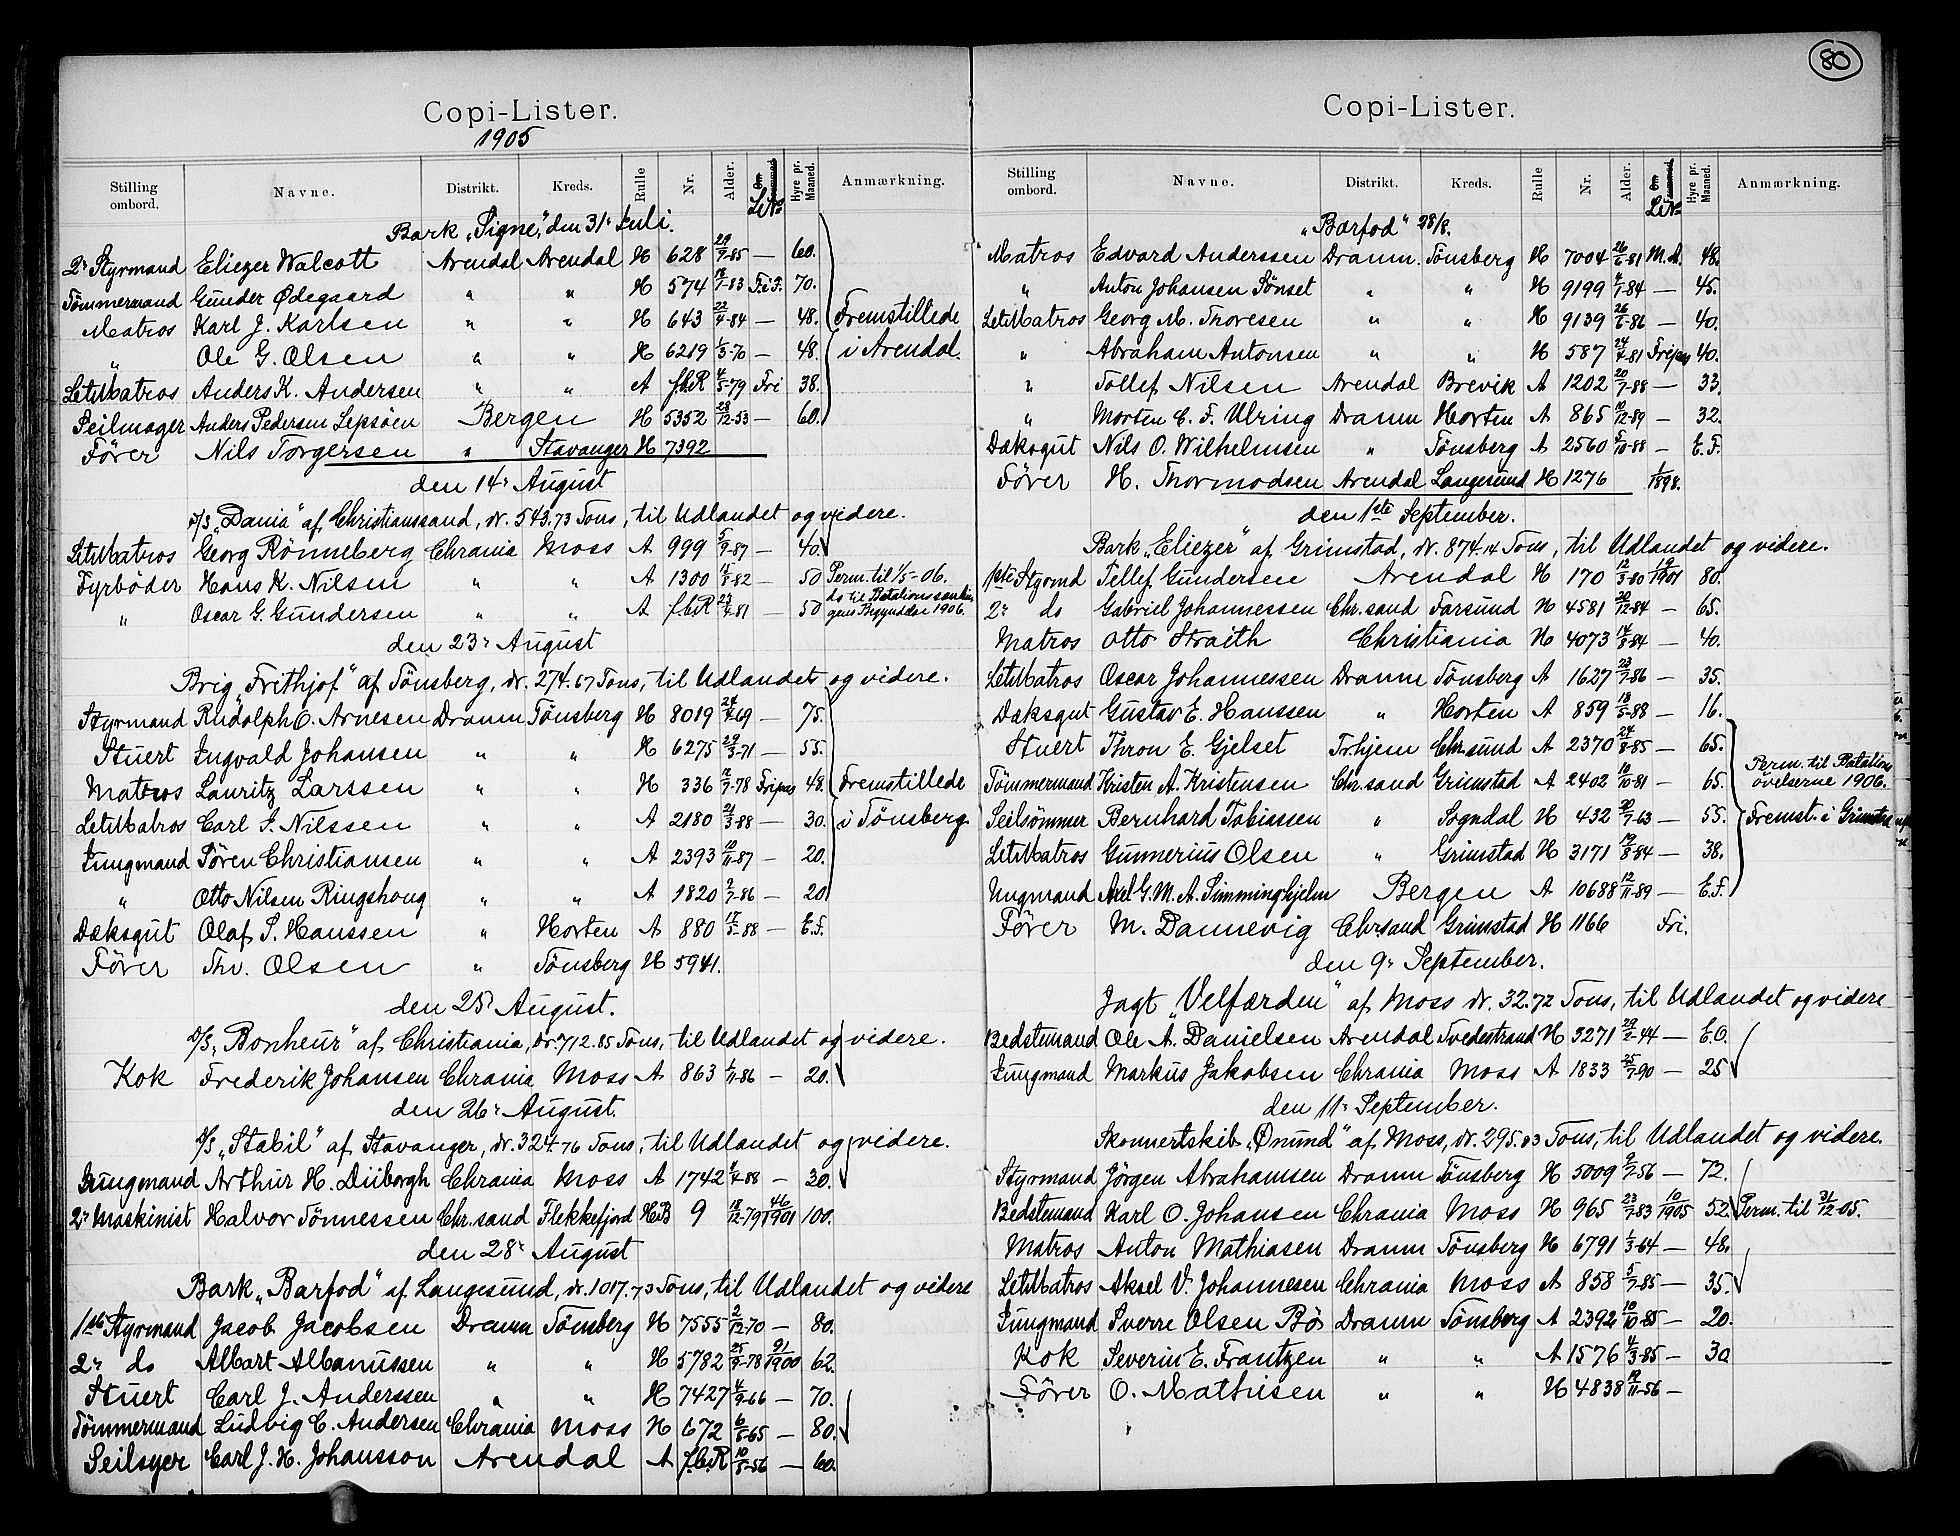 80
Copi-Lister.
1905
Stilling ombord. Navne. Distrikt. Kreds. Rulle Nr. Alder. Hyre pr. Maaned. Anmærkning.
Bark „Signe", den 31' Juli.
2' Styrmand Eliezer Walcott Arendal Arendal H 628 29/9-85 — 60.
Tömmermand Gunder Ødegaard " " H 574 18/7-83 Fri F. 70.
Matros Karl J. Karlsen " " H 643 22/4-84 — 48. Fremstillede
" Ole G. Olsen " " H 6219 1/3-70 — 48. i Arendal.
LetMatros Anders K. Andersen " " A f.b.R 4/5-79 Fri 38.
Seilmager Anders Pedersen Lepsöen Bergen H 5352 28/12-53 — 60.
Förer Nils Torgersen " Stavanger H 7392
den 14' August
D/S „Dania" af Christianssand, dr. 543.73 Tons, til Udlandet og videre.
LetMatros Georg Rönneberg Chrania Moss A 999 5/9-87 — 40.
Fyrböder Hans K. Nilsen " " A 1300 18/8-82 — 50 Perm. til 1/5-06.
" Oscar G. Gundersen " " A f.b.R 23/4-81 — 50 do til Rotationssamlingens Begyndelse 1906.
den 23' August
Brig „Frithjof" af Tönsberg, dr. 274.67 Tons, til Udlandet og videre.
Styrmand Rudolph O. Arnesen Dramn Tönsberg H 8019 24/4-69 — 75.
Stuert Ingvald Johansen " " H 6275 29/3-71 — 55.
Matros Lauritz Larssen " " H 336 12/7-78 Fripas 48. Fremstillede
LetMatros Carl S. Nilssen " " A 2180 21/3-88 — 30. i Tönsberg.
Jungmand Sören Christiansen " " A 2393 10/11-87 — 20.
" Otto Nilsen Ringshoug " " A 1820 2/7-86 — 20
Dæksgut Olaf S. Hanssen " Horten A 880 17/5-88 — E.F.
Förer Thv. Olsen " Tönsberg H 5941.
den 25' August.
D/S „Bonheur" af Christiania, dr. 712.85 Tons, til Udlandet og videre.
Kok Frederik Johansen Chrania Moss A 863 1/11-86 — 20.
den 26' August.
D/S „Stabil" af Stavanger, dr. 324.76 Tons, til Udlandet og videre.
Jungmand Arthur H. Düborgh Chrania Moss A 1742 1/4-88 — 30.
2' Maskinist Halvor Tönnessen Chr.sand Flekkefjord HB 9 18/12-79 46/1901 100.
den 28' August
Bark „Barfod" af Langesund, dr. 1017.73 Tons, til Udlandet og videre
1ste Styrmand Jacob Jacobsen Dramn Tönsberg H 7555 2/12-70 — 80.
2' do Albart Albanussen " " H 5782 25/9-78 91/1900 62.
Stuert Carl J. Anderssen " " H 7427 4/9-66 — 70.
Tömmermand Ludvig C. Andersen Chrania Moss H 672 6/5-65 — 80.
Seilsyer Carl J. H. Johansson Arendal A f.b.R 10/8-56 — 60.
Copi-Lister.
Stilling ombord. Navne. Distrikt. Kreds. Rulle Nr. Alder. Hyre pr. Maaned. Anmærkning.
„Barfod" 28/8.
Matros Edvard Anderssen Dramn. Tönsberg H 7004 26/6-81 M.A. 48.
" Anton Johansen Sönset " " H 9199 4/1-84 — 45.
LetMatros Georg M. Thoresen " " H 9139 26/6-86 — 40.
" Abraham Antonsen " " H 587 24/4-81 Fripas 40.
" Tollef Nilsen Arendal Brevik A 1202 20/7-88 — 33.
" Morten C. F. Ulring Dramn Horten A 865 10/12-89 — 32.
Dæksgut Nils O. Wilhelmsen " Tönsberg A 2560 5/10-88 — E.F.
Förer H. Thormodsen Arendal Langesund H 1276 1/1898.
den 1ste September.
Bark „Eliezer" af Grimstad, dr. 874.14 Tons, til Udlandet og videre.
1ste Styrmd Tellef Gundersen Arendal H 170 12/3-80 19/1901 80.
2' do Gabriel Johannessen Chr.sand Farsund H 4581 30/12-84 — 65.
Matros Otto Straith Christiania H 4073 14/8-84 — 40.
LetMatros Oscar Johannessen Dramn Tönsberg A 1627 23/7-86 — 35.
Dæksgut Gustav E. Hanssen " Horten A 859 18/5-88 — 16.
Stuert Thron E. Gjelset Trhjem Chr.sund A 2370 24/8-85 — 65.
Tömmermand Kristen A. Kristensen Chr.sand Grimstad A 2402 10/10-81 — 65. Perm. til Rotations övelserne 1906.
Seilsömmer Bernhard Tobiassen " Sogndal H 432 30/7-63 — 55. Fremst. i Grimstad
LetMatros Gunnerius Olsen " Grimstad H 3171 19/8-84 — 38.
Ungmand Axel G. M. A. Simminghjelm Bergen A 10688 12/11-89 — E.F.
Förer M. Dannevig Chr.sand Grimstad H 1166 Fri.
den 9' September.
Jagt „Velfærden" af Moss dr. 32.72 Tons, til Udlandet og videre
Bedstemand Ole A. Danielsen Arendal Tvedestrand H 3271 29/2-44 — E.O.
Jungmand Markus Jakobsen Chrania Moss A 1833 25/7-90 — 25
den 11' September.
Skonnertskib „Önund" af Moss, dr. 295.83 Tons, til Udlandet og videre.
Styrmand Jörgen Abrahamsen Dramn Tönsberg H 5009 9/7-56 — 72.
Bedstemand Karl O. Johansen Chrania Moss H 965 23/7-83 10/1905 52. Perm. til 31/12-05.
Matros Anton Mathiasen Dramn Tönsberg H 6791 1/3-64 — 48.
LetMatros Aksel V. Johannesen Chrania Moss A 858 5/7-85 — 35.
Jungmand Sverre Olsen Bö Dramn Tönsberg A 2392 10/10-85 — 20.
Kok Severin E. Frantzen " " A 1576 4/3-85 — 30
Förer O. Mathisen " " H 4838 19/11-56 —